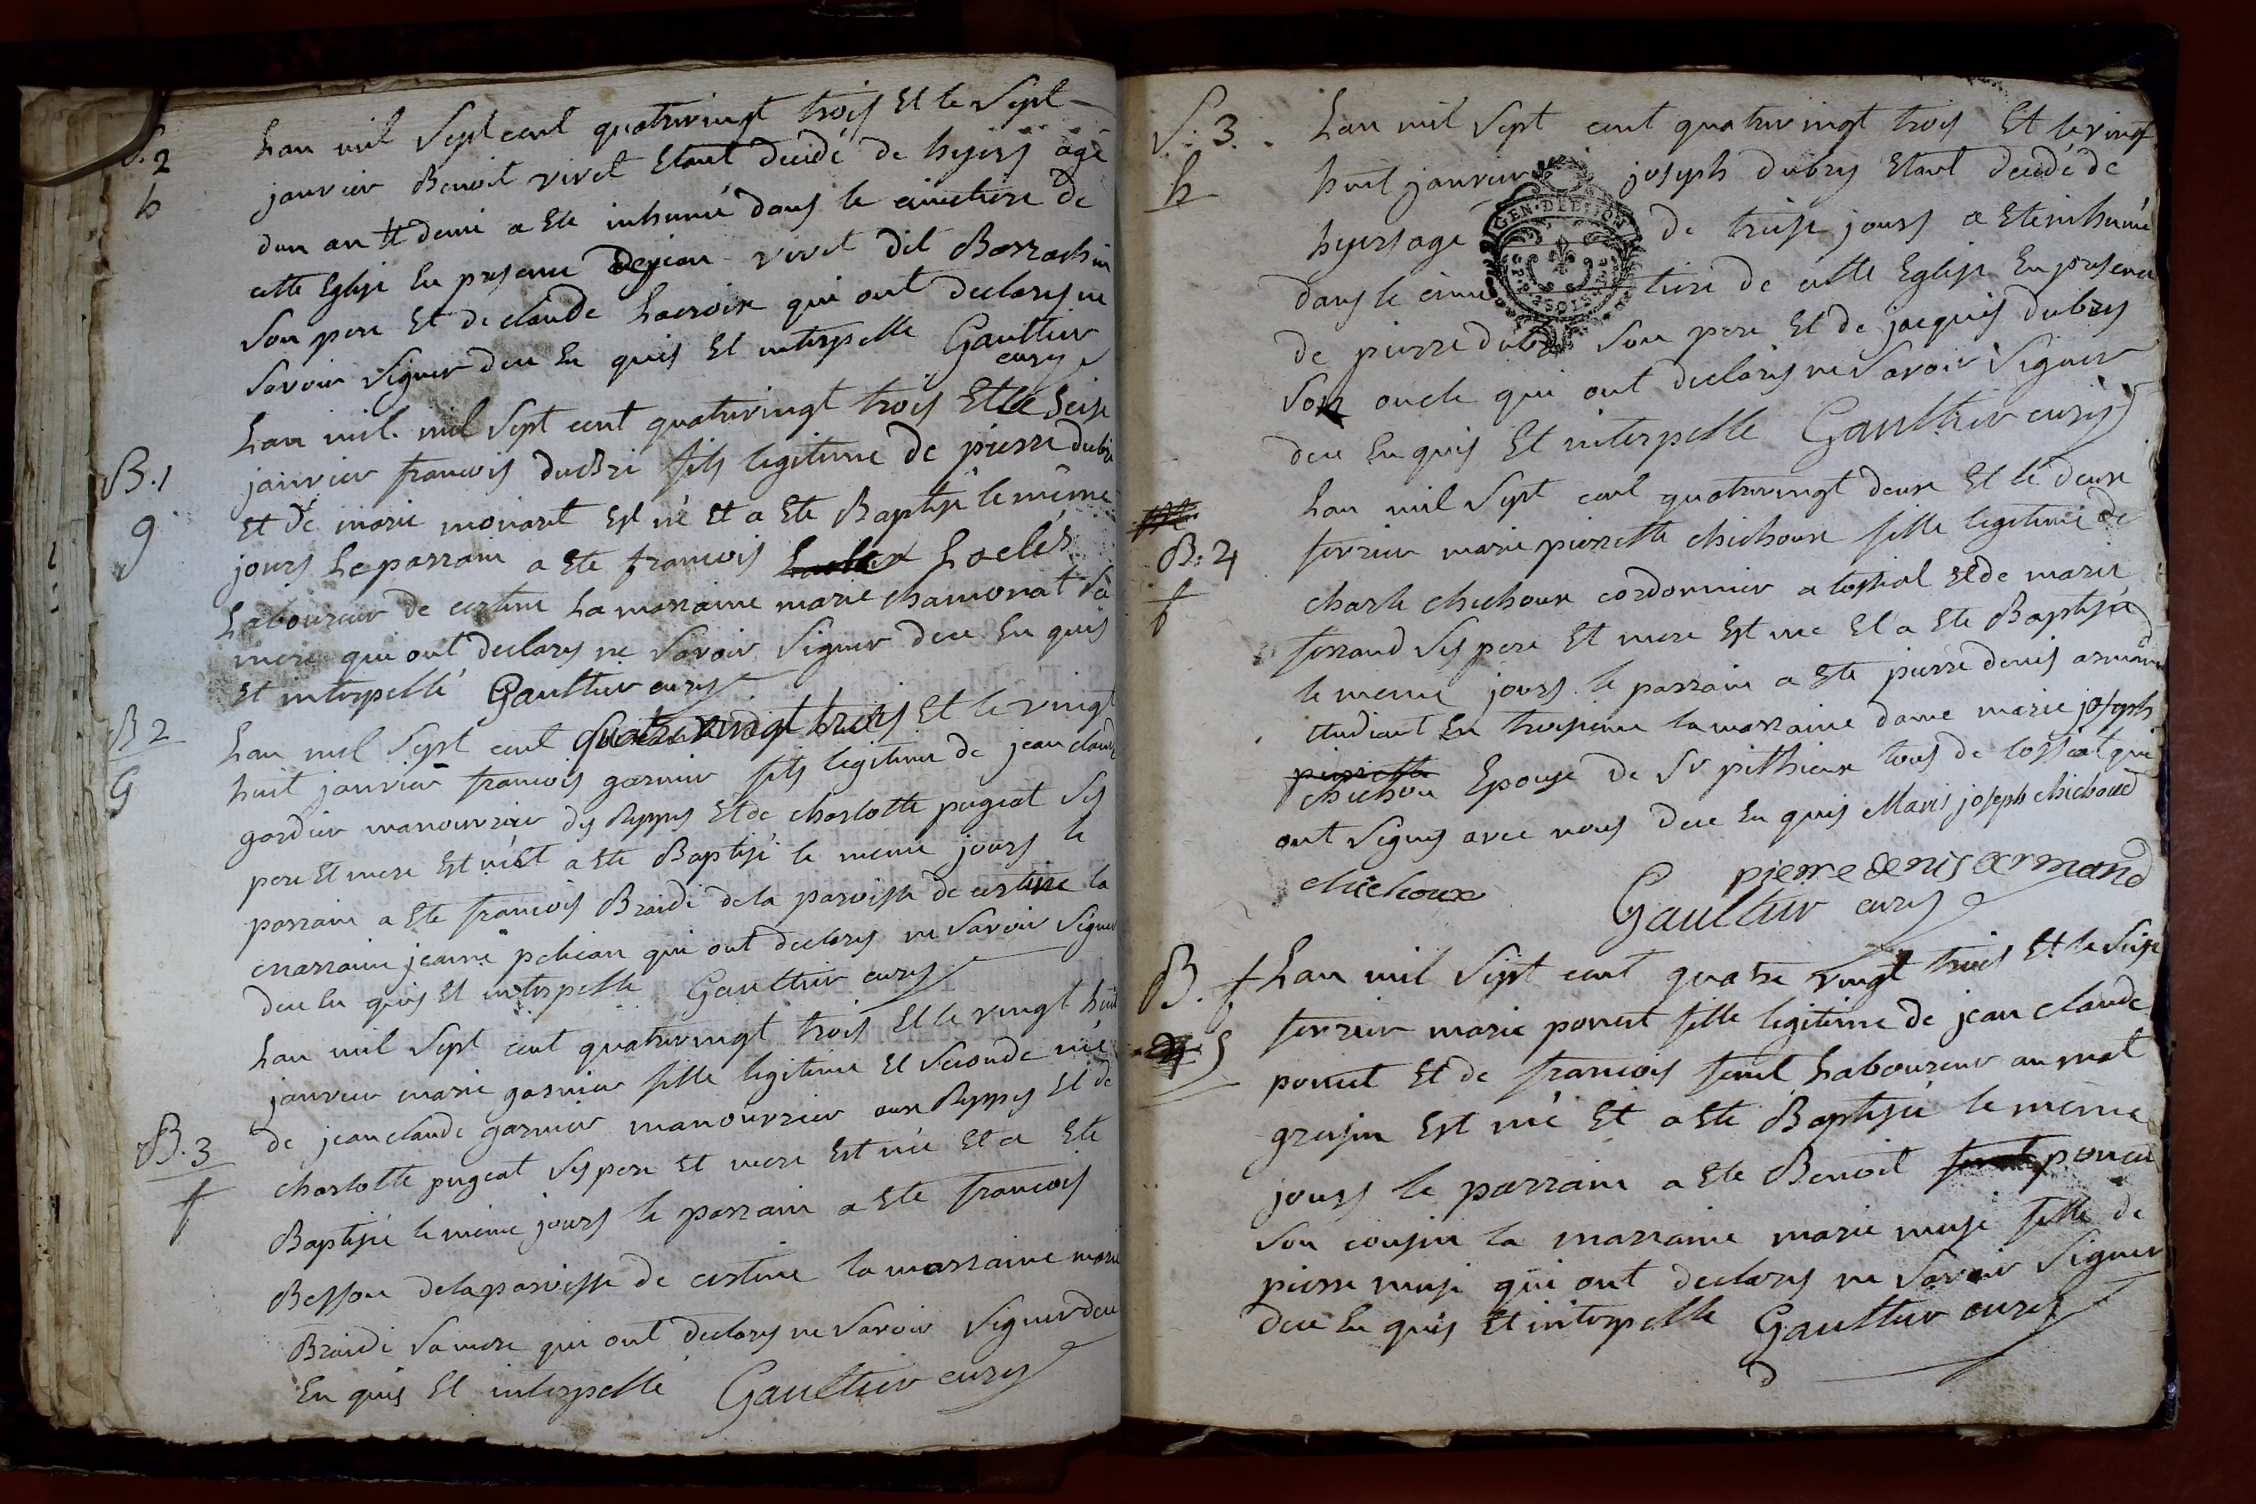 S. 2
h
Lan mil sept cent quatrevingt trois Et le sept
janvier Benoit vivet Etant decidé de hyers agé
dun an Et demi a Ete inhumé dans le cimetiere de
cette Eglise En presence de jean vivet dit Borrachin
son pere Et de claude Lacroix qui ont declarés ne
savoir signer deu En quis Et interpelle Gaultier
curé
B. 1
g
Lan mil mil sept cent quatrevingt trois Et le seise
janvier francois dubri fils legitime de pierre dubri
Et de marie monaret Est né Et a Ete Baptisé le même
jours Le parrain a Ete francois Loclés
Laboureur de certine La marraine marie chamonat sa
mere qui ont declarés ne savoir signer deu En quis
Et interpellé Gaultier curé
B 2
G
Lan mil sept cent quatre vingt trois Et le vingt
huit janvier francois garnier fils legitime de jean claude
gardier manouvrier des Reppes Et de charlotte pugeat ses
pere Et mere Est né Et a Ete Baptisé le meme jours le
parrain a Ete francois Braidi de la paroisse de certine la
marraine jeanne pelican qui ont declarés ne savoir signer
deu En quis Et interpelle Gaultier curé
B. 3
f
Lan mil sept cent quatrevingt trois Et le vingt huit
janvier marie garnier fille legitime Et seconde née
de jean claude garnier manouvrier aux Reppes Et de
charlotte pugeat ses pere Et mere Est née Et a Ete
Baptisée le même jours le parrain a Ete francois
Besson de la paroisse de certine la marraine marie
Braidi sa mere qui ont declarés ne savoir signer deu
En quis Et interpellé Gaultier curé
S. 3.
h
Lan mil sept cent quatrevingt trois Et le vingt
huit janvier joseph dubrs Etant decidé de
hyers agé de treise jours a Ete inhumé
dans le cimetiere de cette Eglise En presence
de pierre dubrs son pere Et de jacques dubrs
son oncle qui ont declarés ne savoir signer
deu En quis Et interpelle Gaultier curé
GEN. DE DIION
B. 4
f
Lan mil sept cent quatrevingt deux Et le deux
fevrier marie pierrette chichoux fille legitime de
charle chichoux cordonnier a tossiat Et de marie
ferrand ses pere Et mere Est née Et a Ete Baptisée
le meme jours le parrain a Ete pierre denis armand
Etudiant En troisieme la marraine dame marie joseph
pierrette
chichou Epouse de Sr pithieux tous de tossiat qui
ont signes avec nous deu En quis Maris joseph chichoud
chichoux pierre denis armand
Gaultier curé
B. f
5
Lan mil sept cent quatre vingt trois Et le seise
fevrier marie poncet fille legitime de jean claude
poncet Et de francois feret Laboureur au mat
greusin Est née Et a Ete Baptisée le meme
jours le parrain a Ete Benoit poncet
son cousin la marraine marie muse fille de
pierre muse qui ont declarés ne savoir signer
deu En quis Et interpelle Gaultier curé